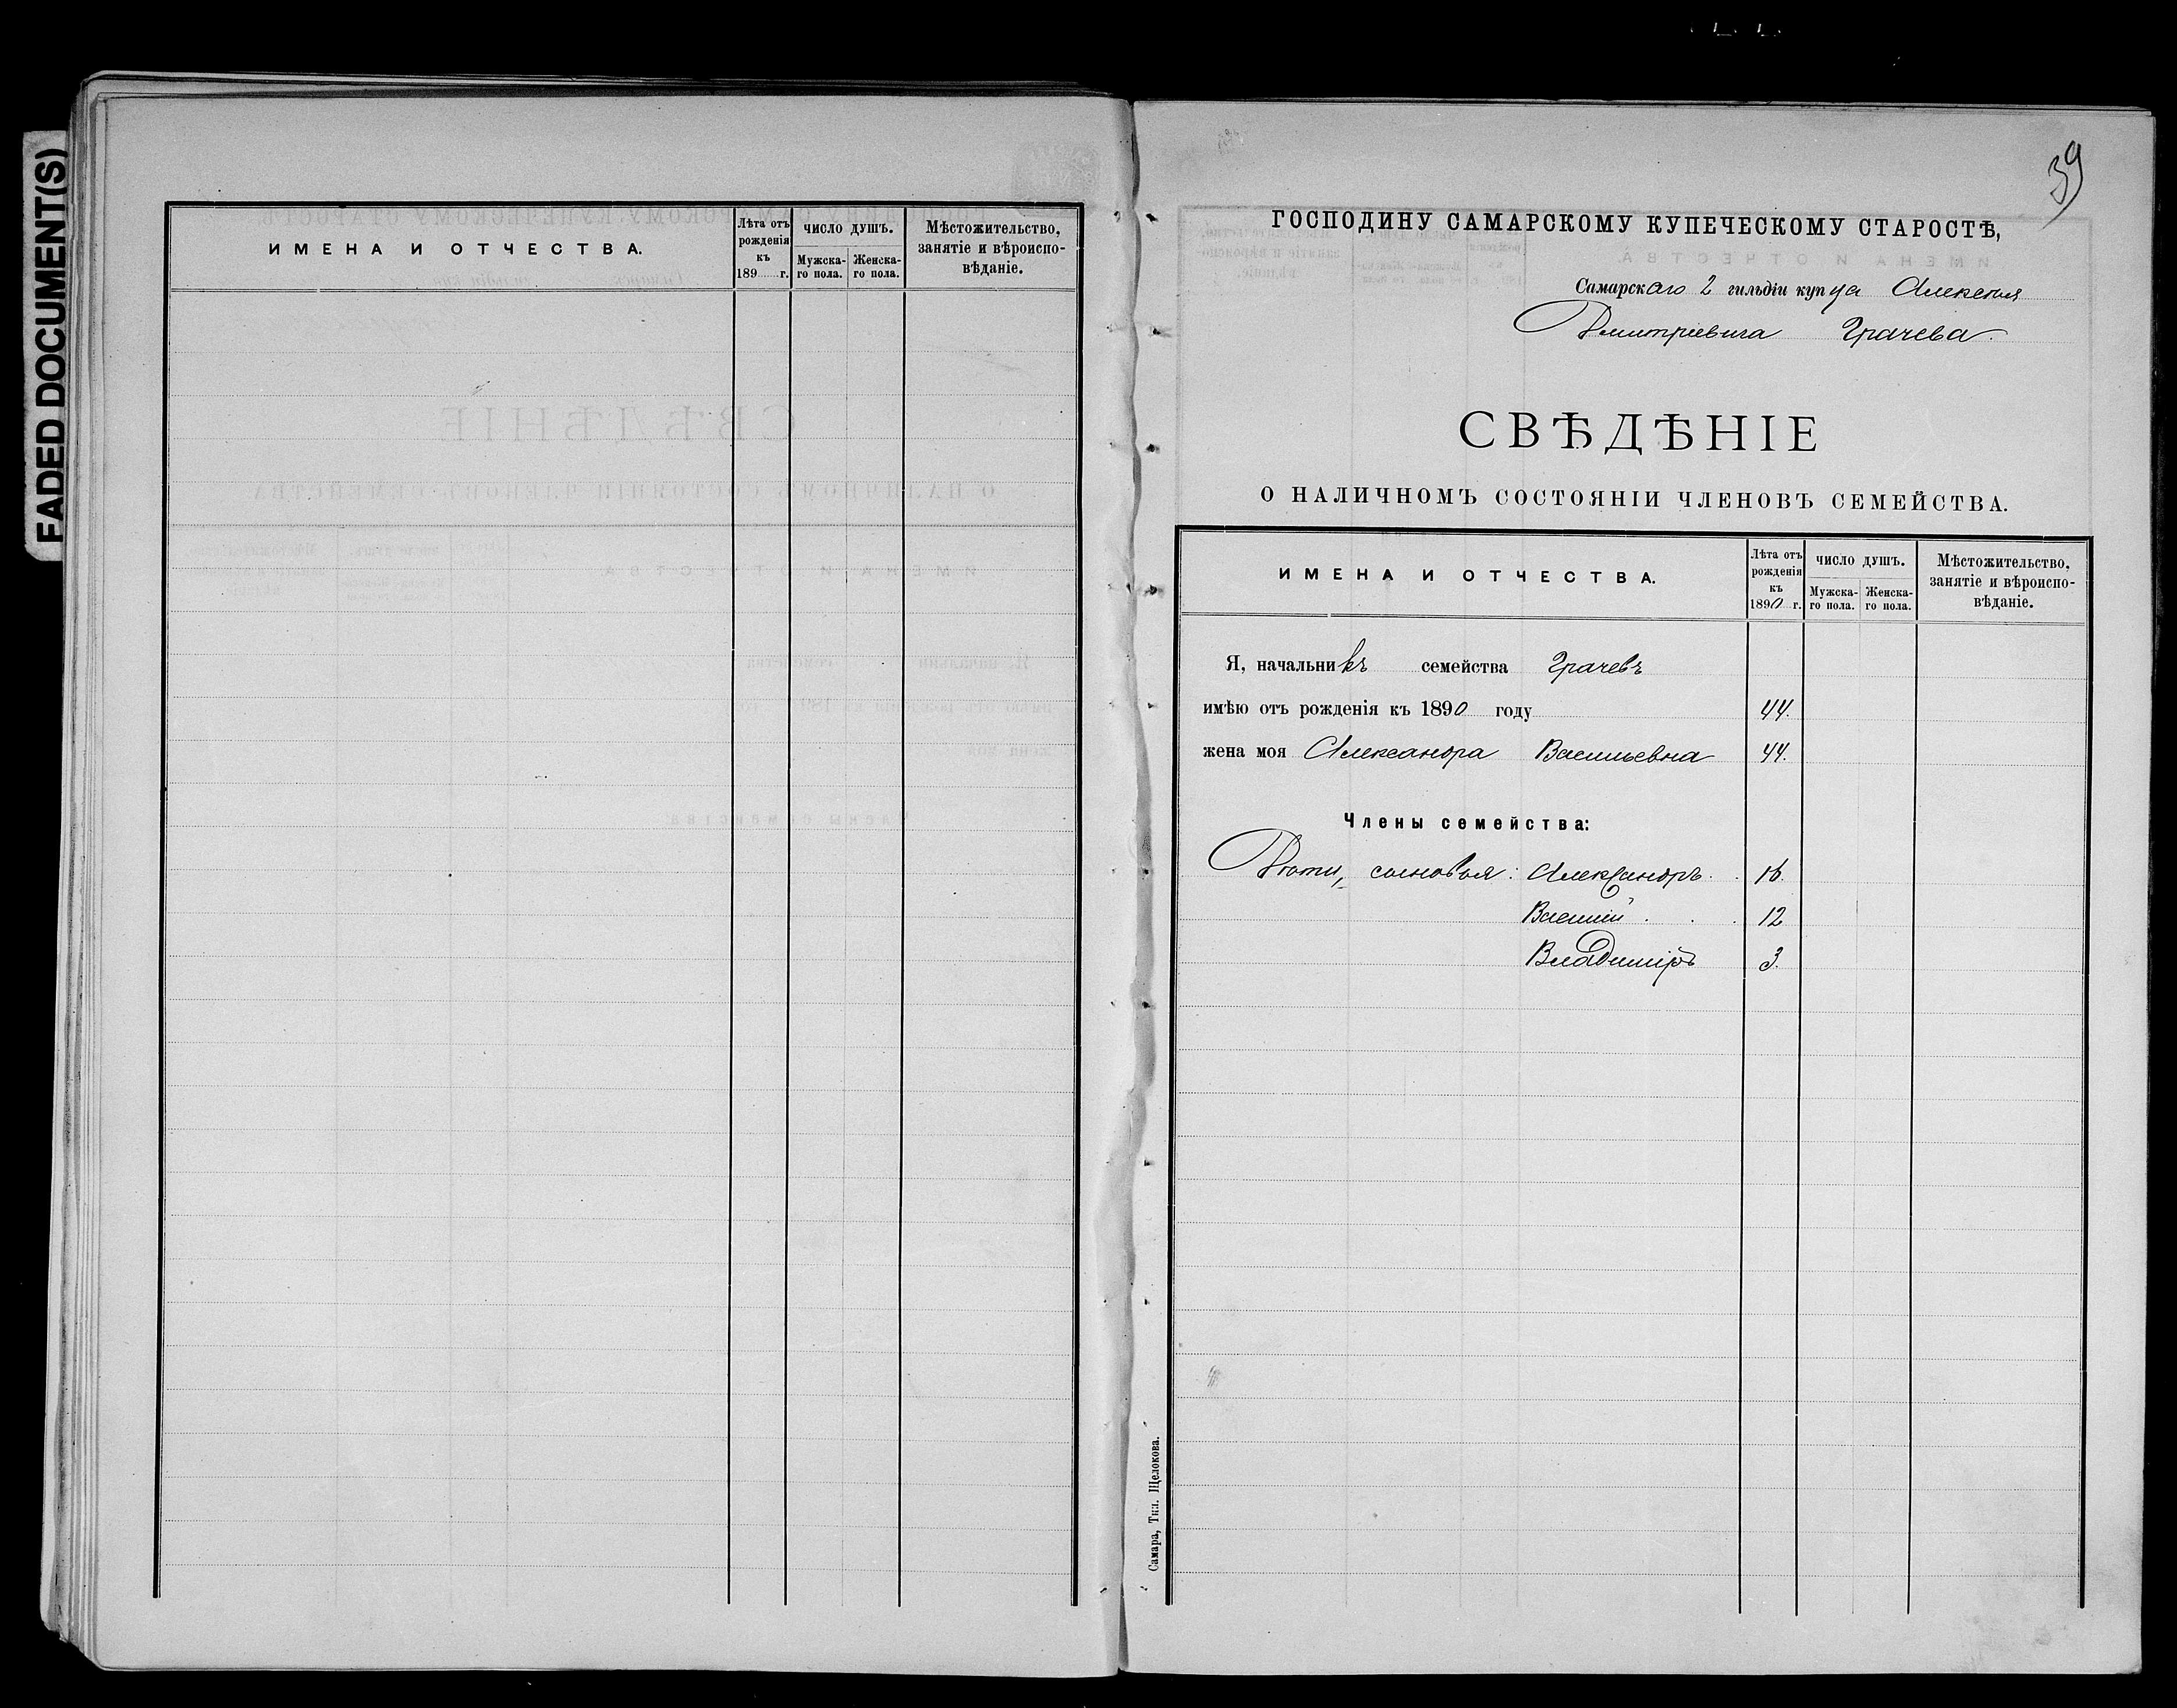 FADED DOCUMENT(S)
ИМЕНА И ОТЧЕСТВА.
Лѣта отъ рожденія къ 189 г.
ЧИСЛО ДУШЪ.
Мужска-го пола.
Женска-го пола.
Мѣстожительство, занятіе и вѣроиспо-вѣданіе.
39
ГОСПОДИНУ САМАРСКОМУ КУПЕЧЕСКОМУ СТАРОСТѢ,
Самарскаго 2 гильдіи купца Алексѣя
Дмитріевича Грачева.
СВѢДѢНІЕ
О НАЛИЧНОМЪ СОСТОЯНІИ ЧЛЕНОВЪ СЕМЕЙСТВА.
ИМЕНА И ОТЧЕСТВА.
Лѣта отъ рожденія къ 1890 г.
ЧИСЛО ДУШЪ.
Мужска-го пола.
Женска-го пола.
Мѣстожительство, занятіе и вѣроиспо-вѣданіе.
Я, начальникъ семейства Грачевъ
имѣю отъ рожденія къ 1890 году 44.
жена моя Александра Васильевна 44.
Члены семейства:
Дѣти, сыновья: Александръ 16.
Василій 12
Владиміръ 3.
Самара, Тип. Щелокова.